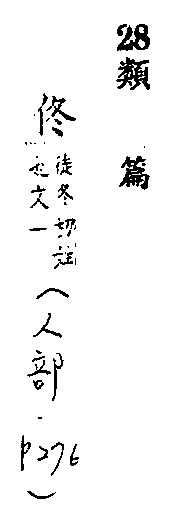 28類篇
佟
徒冬切姓
也文一
(人部.p276)